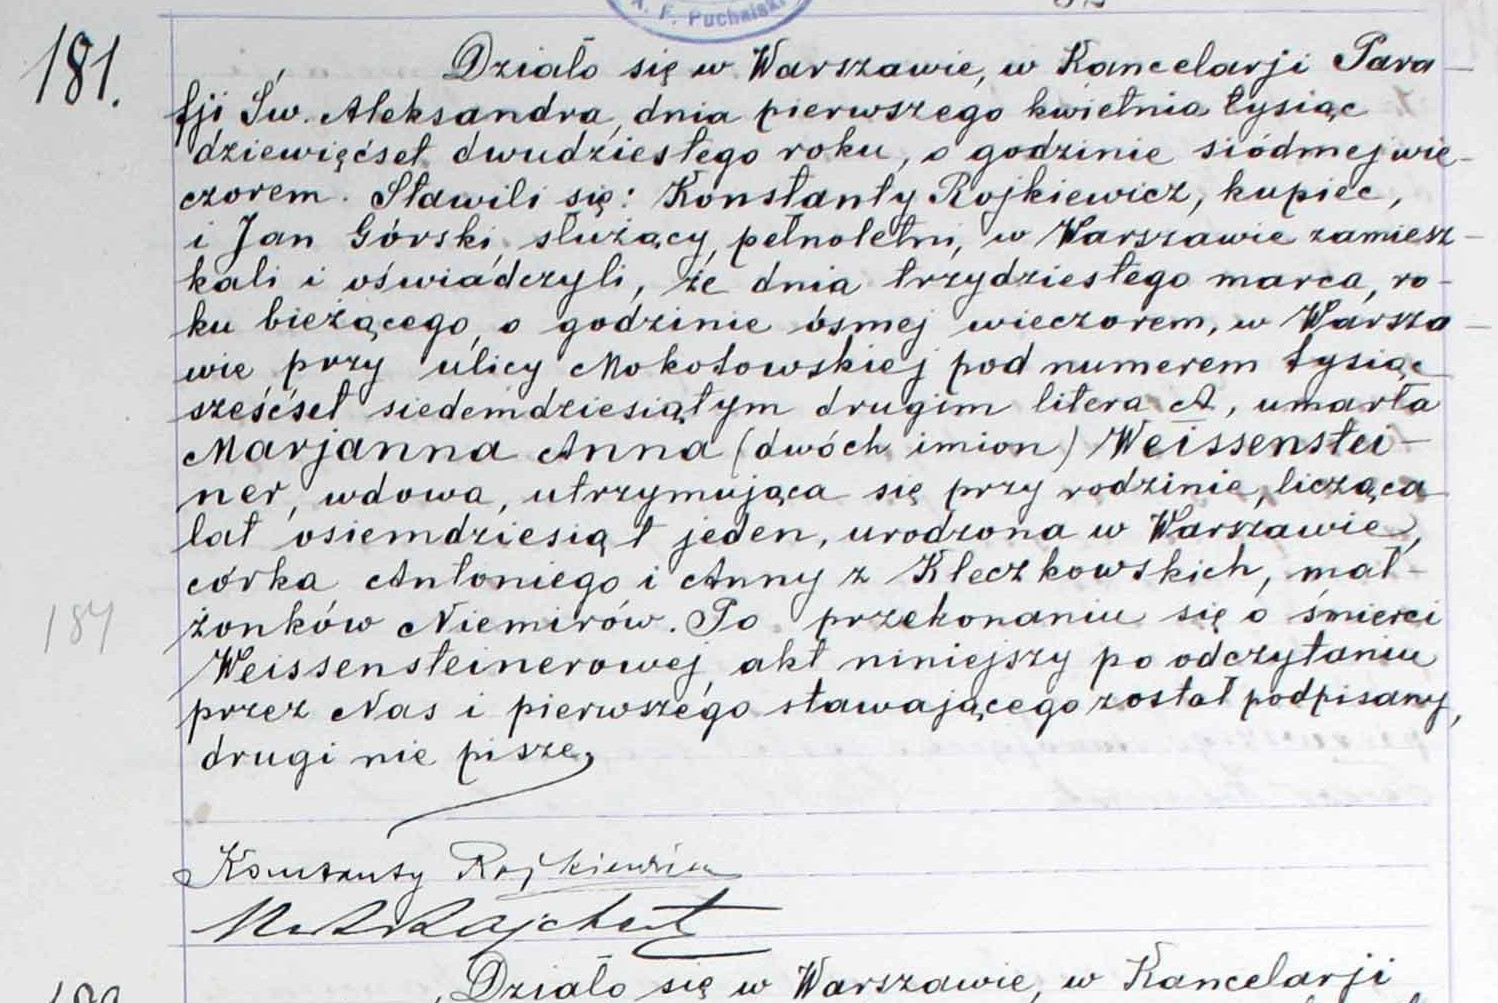 F. Puchalski
181.
Działo się w Warszawie, w Kancelarji Para-
fji Św. Aleksandra, dnia pierwszego kwietnia tysiąc
dziewięćset dwudziestego roku, o godzinie siódmej wie-
czorem. Stawili się: Konstanty Rojkiewicz, kupiec,
i Jan Górski, służący, pełnoletni, w Warszawie zamiesz-
kali i oświadczyli, że dnia trzydziestego marca, ro-
ku bieżącego, o godzinie ósmej wieczorem, w Warsza-
wie przy ulicy Mokotowskiej pod numerem tysiąc
sześćset siedemdziesiątym drugim litera A, umarła
Marjanna Anna (dwóch imion) Weissenstei-
ner, wdowa, utrzymująca się przy rodzinie, licząca
lat osiemdziesiąt jeden, urodzona w Warszawie,
córka Antoniego i Anny z Kleczkowskich, mał-
żonków Niemirów. Po przekonaniu się o śmierci
184
Weissensteinerowej, akt niniejszy po odczytaniu
przez Nas i pierwszego stawającego został podpisany,
drugi nie pisze,
Konstanty Rojkiewicz
Działo się w Warszawie, w Kancelarji